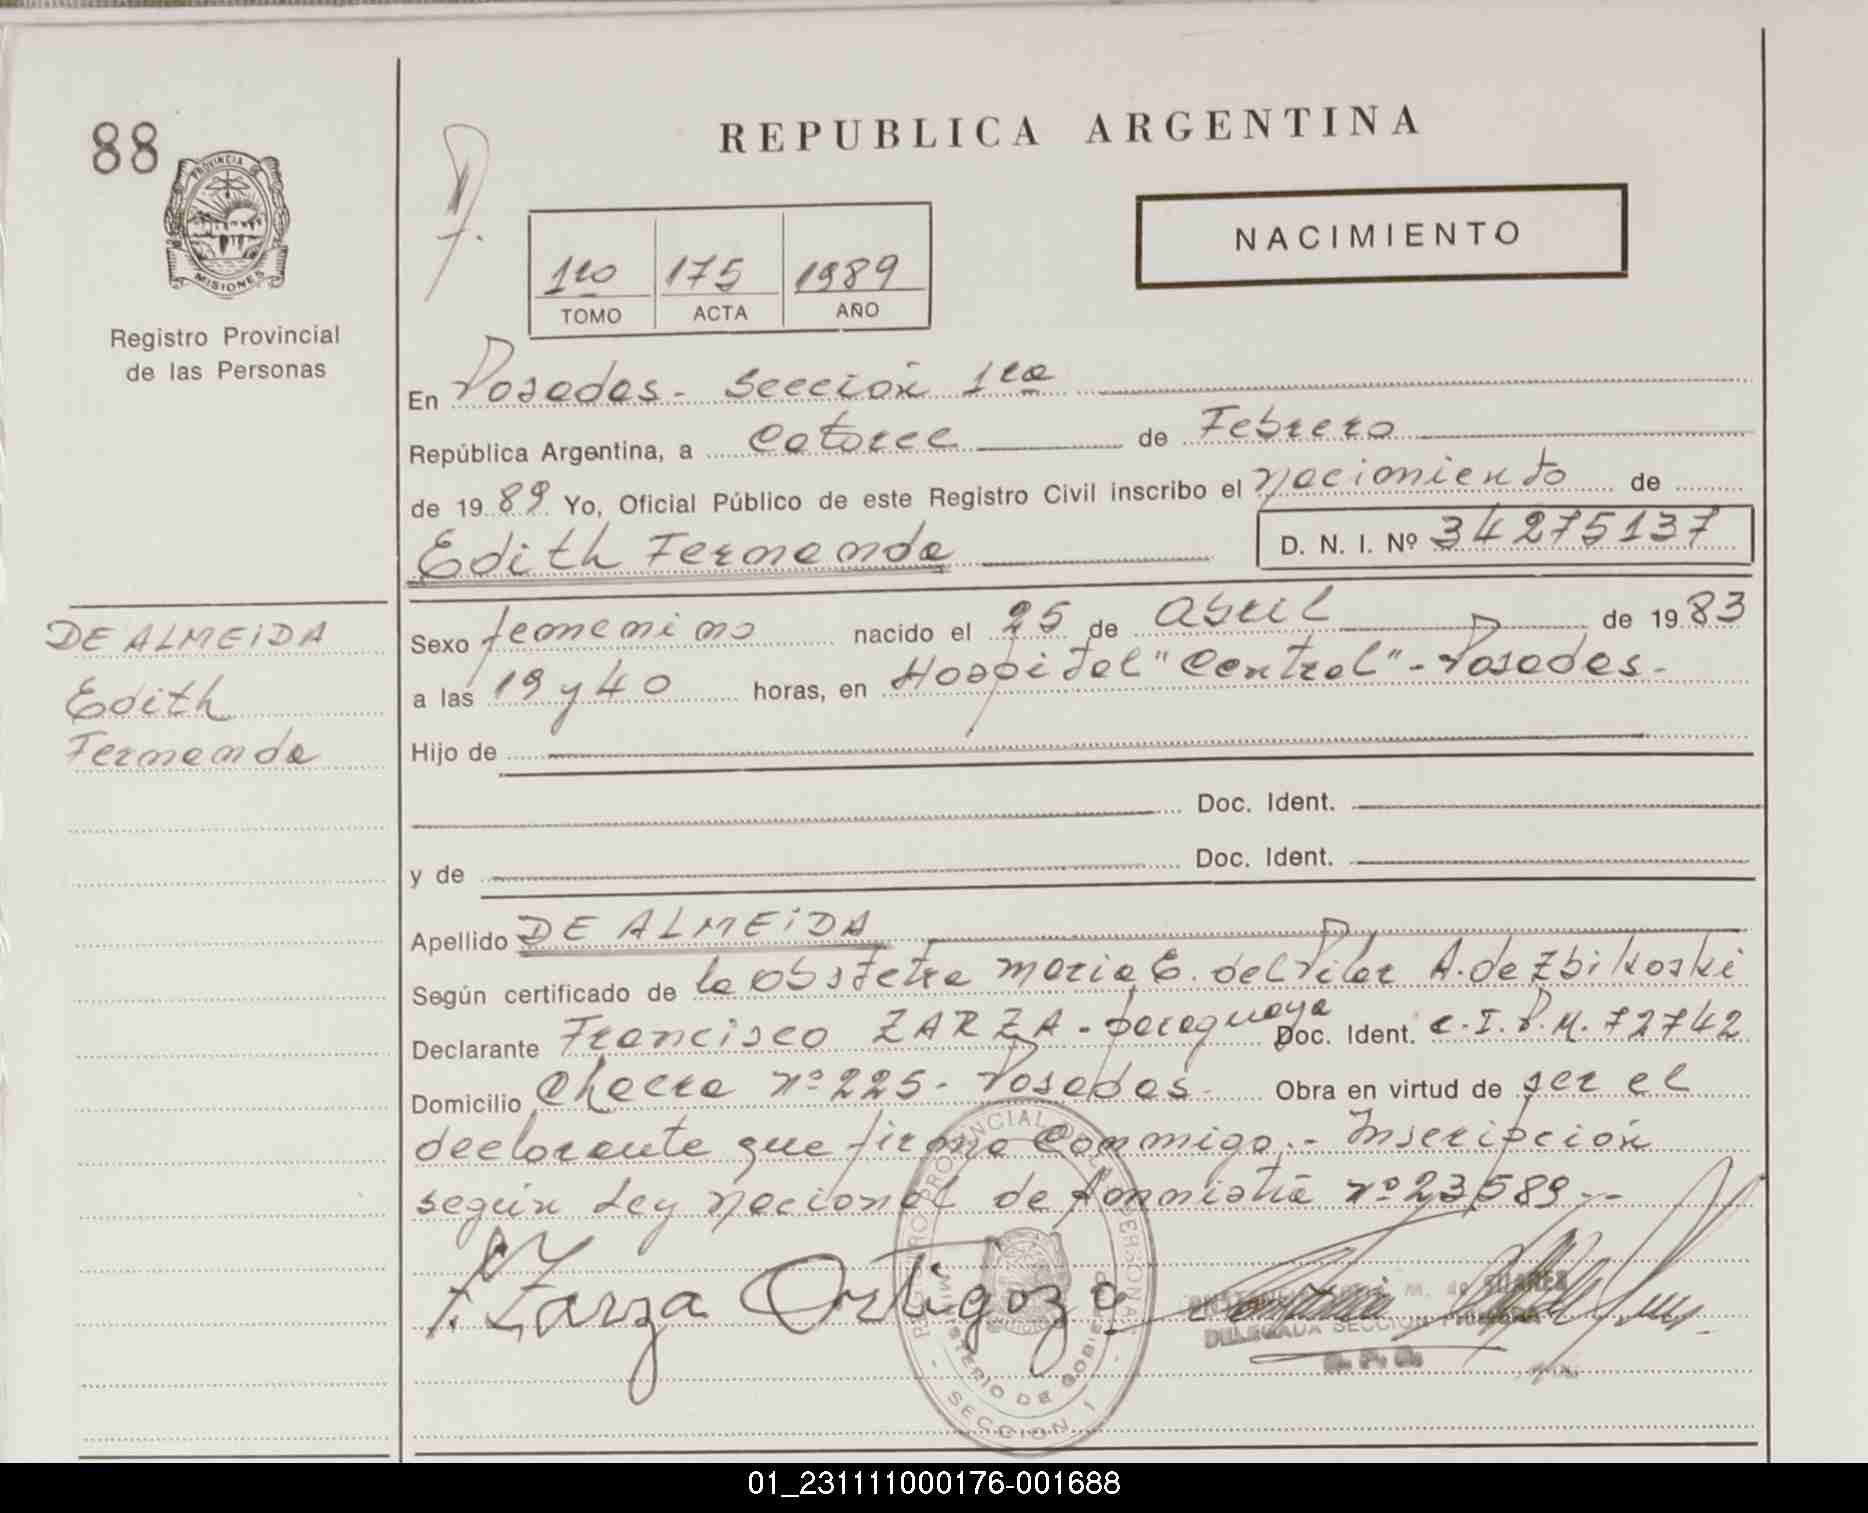 88
PROVINCIA DE
MISIONES
Registro Provincial
de las Personas
DE ALMEIDA
Edith
Fernanda
REPUBLICA ARGENTINA
NACIMIENTO
1ro 175 1989
TOMO ACTA AÑO
En Posadas - Sección 1ra
República Argentina, a Catorce de Febrero
de 19 89 Yo, Oficial Público de este Registro Civil inscribo el nacimiento de
Edith Fernanda D. N. I. Nº 34275137
Sexo femenino nacido el 25 de abril de 19 83
a las 19 y 40 horas, en Hospital "Central" - Posadas -
Hijo de
Doc. Ident.
y de Doc. Ident.
Apellido DE ALMEIDA
Según certificado de la Obstetra Maria E. del Pilar A. de Zbikoski
Declarante Francisco ZARZA - paraguaya Doc. Ident. C.I.P.M. 72742
Domicilio Chacra nº 225 - Posadas - Obra en virtud de ser el
declarante que firma conmigo.- Inscripción
según Ley Nacional de Amnistía nº 23589 --
F. Zarza Ortigoza
REGISTRO PROVINCIAL DE LAS PERSONAS
MINISTERIO DE GOBIERNO
- SECCION 1 -
M. de SUAREZ
DELEGADA SECCION PRIMERA
01_231111000176-001688